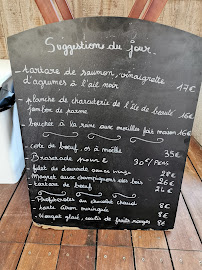 Suggestions du jour
- tartare de saumon, vinaigrette
d'agrumes à l'ail noir 17€
- planche de charcuterie de l'île de beauté 16€
jambon de parme
bouchée à la reine aux morilles fait maison 16€
- cote de boeuf, os à moëlle 35€
- Brascade pour 2 30€/Pers
- filet de daurade 28€
- Magret aux champignons des bois 26€
- tartare de boeuf 26€
- Profiteroles au chocolat chaud 8€
- tarte citron meringuée 8€
- Nougat glacé, coulis de fruits rouges 8€